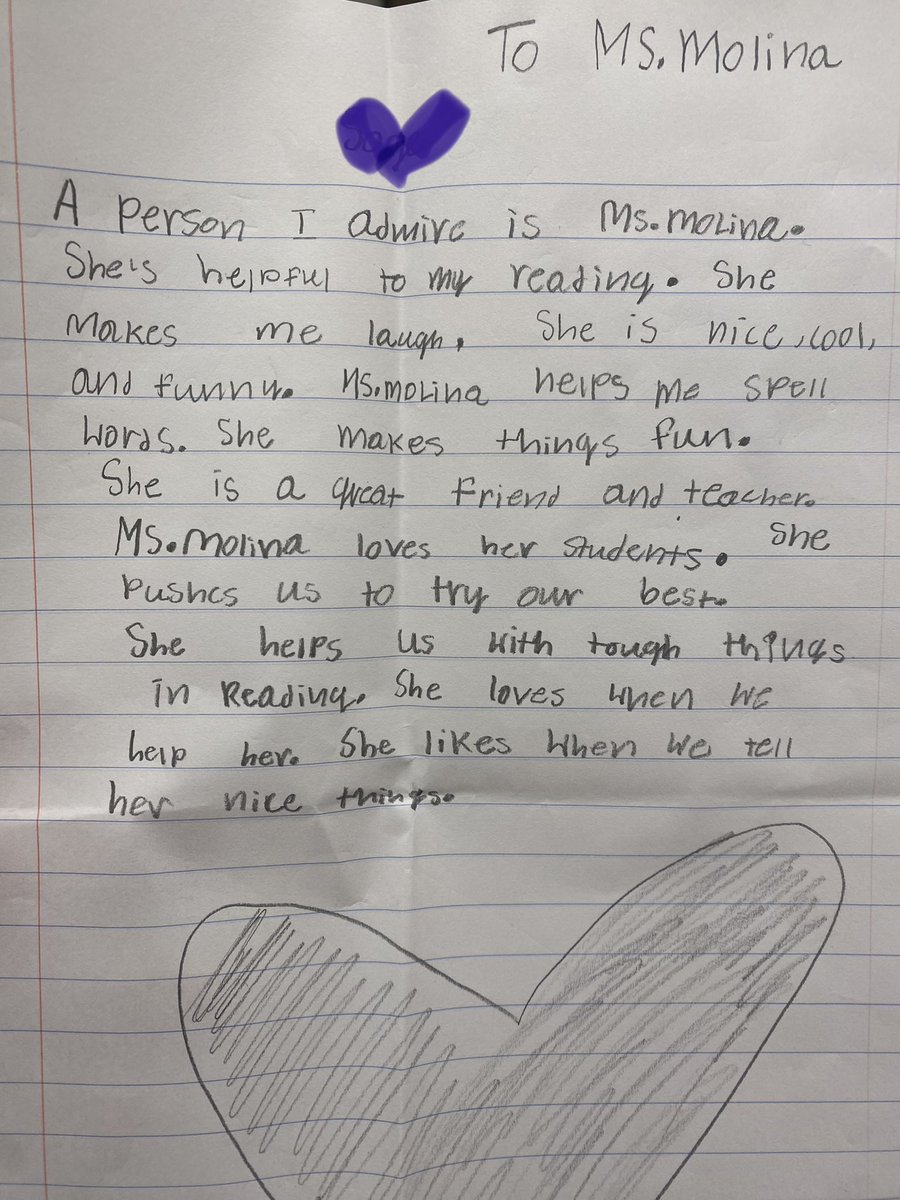 To Ms. Molina
A person I admire is Ms. Molina.
She's helpful to my reading. She
makes me laugh. She is nice, cool,
and funny. Ms. Molina helps me spell
words. She makes things fun.
She is a great friend and teacher.
Ms. Molina loves her students. She
pushes us to try our best.
She helps us with tough things
in Reading. She loves when we
help her. She likes when we tell
her nice things.